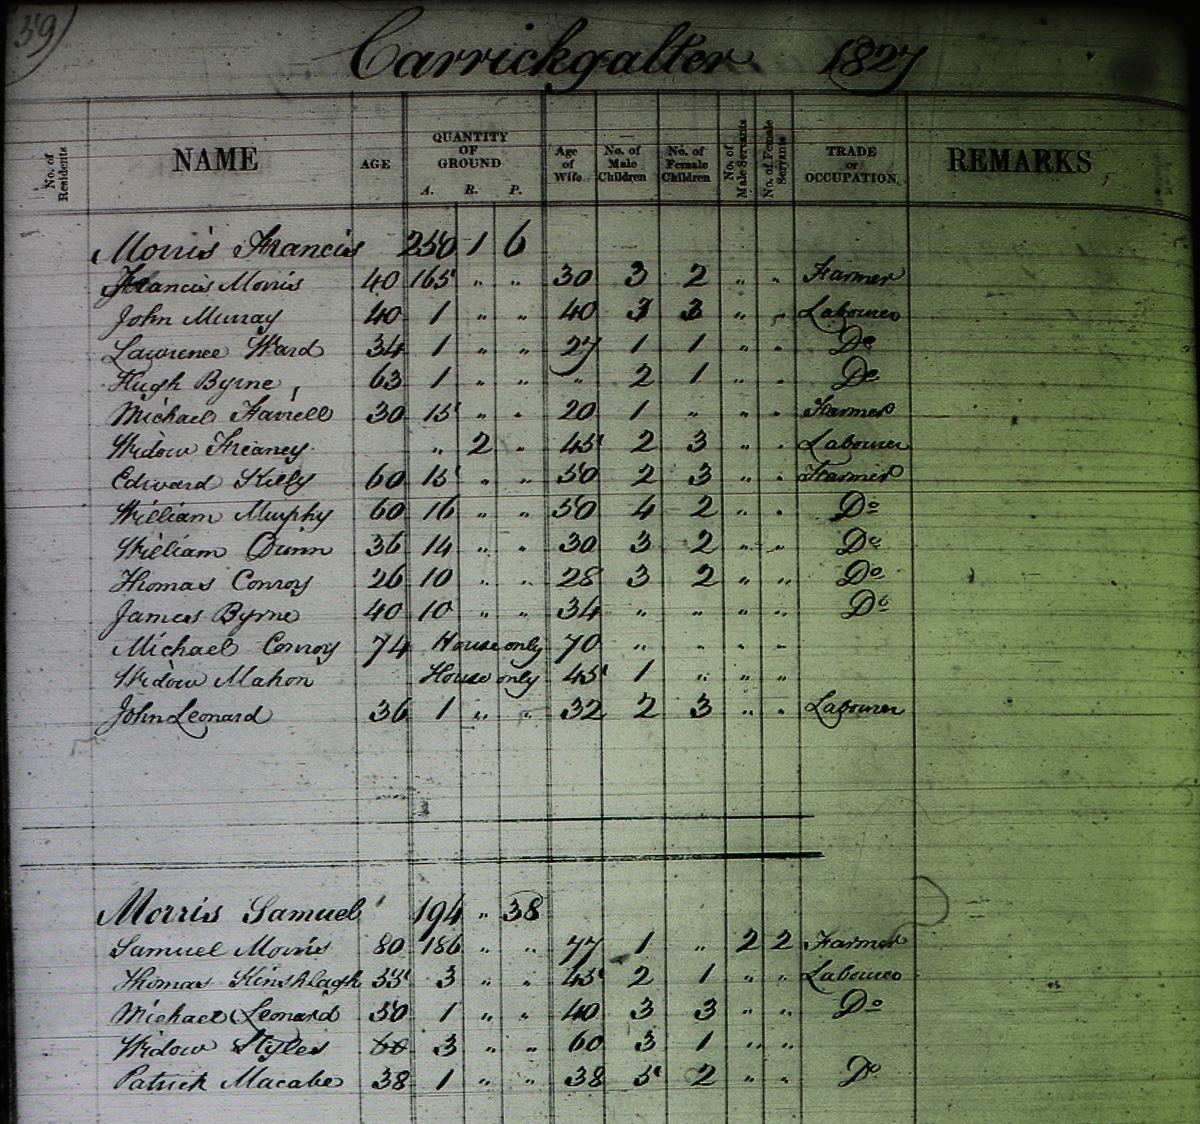 39)
Carrickgalter 1827
No. of Residents NAME AGE QUANTITY OF GROUND A. R. P. Age of Wife No. of Male Children No. of Female Children No. of Male Servants No. of Female Servants TRADE OR OCCUPATION REMARKS
Morris Francis 250 1 6
Francis Morris 40 165 " " 30 3 2 " " Farmer
John Murray 40 1 " " 40 3 3 " " Labourer
Lawrence Ward 34 1 " " 27 1 1 " " Do
Hugh Byrne 63 1 " " " 2 1 " " Do
Michael Farrell 30 15 " " 20 1 " " " Farmer
Widow " 2 " 45 2 3 " " Labourer
Edward Kelly 60 15 " " 50 2 3 " " Farmer
William Murphy 60 16 " " 50 4 2 " " Do
William Dunn 36 14 " " 30 3 2 " " Do
Thomas Conroy 26 10 " " 28 3 2 " " Do
James Byrne 40 10 " " 34 " " " " Do
Michael Conroy 74 House only 70 " " " "
Widow Mahon House only 45 1 " " "
John Leonard 36 1 " " 32 2 3 " " Labourer
Morris Samuel 194 " 38
Samuel Morris 80 186 " " 77 1 " 2 2 Farmer
Thomas Kinshlagh 55 3 " " 45 2 1 " " Labourer
Michael Leonard 50 1 " " 40 3 3 " " Do
Widow Styles 60 3 " " 60 3 1 " "
Patrick Macabe 38 1 " " 38 5 2 " " Do